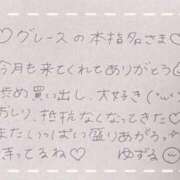 ♡グレースの本指名さま♡
今月も来てくれてありがとう☺
決め買い出し、大好き(
おしり、抵抗なくなってきた♡
またいっぱい盛りあがろ
待ってるね♡ ゆずる☺